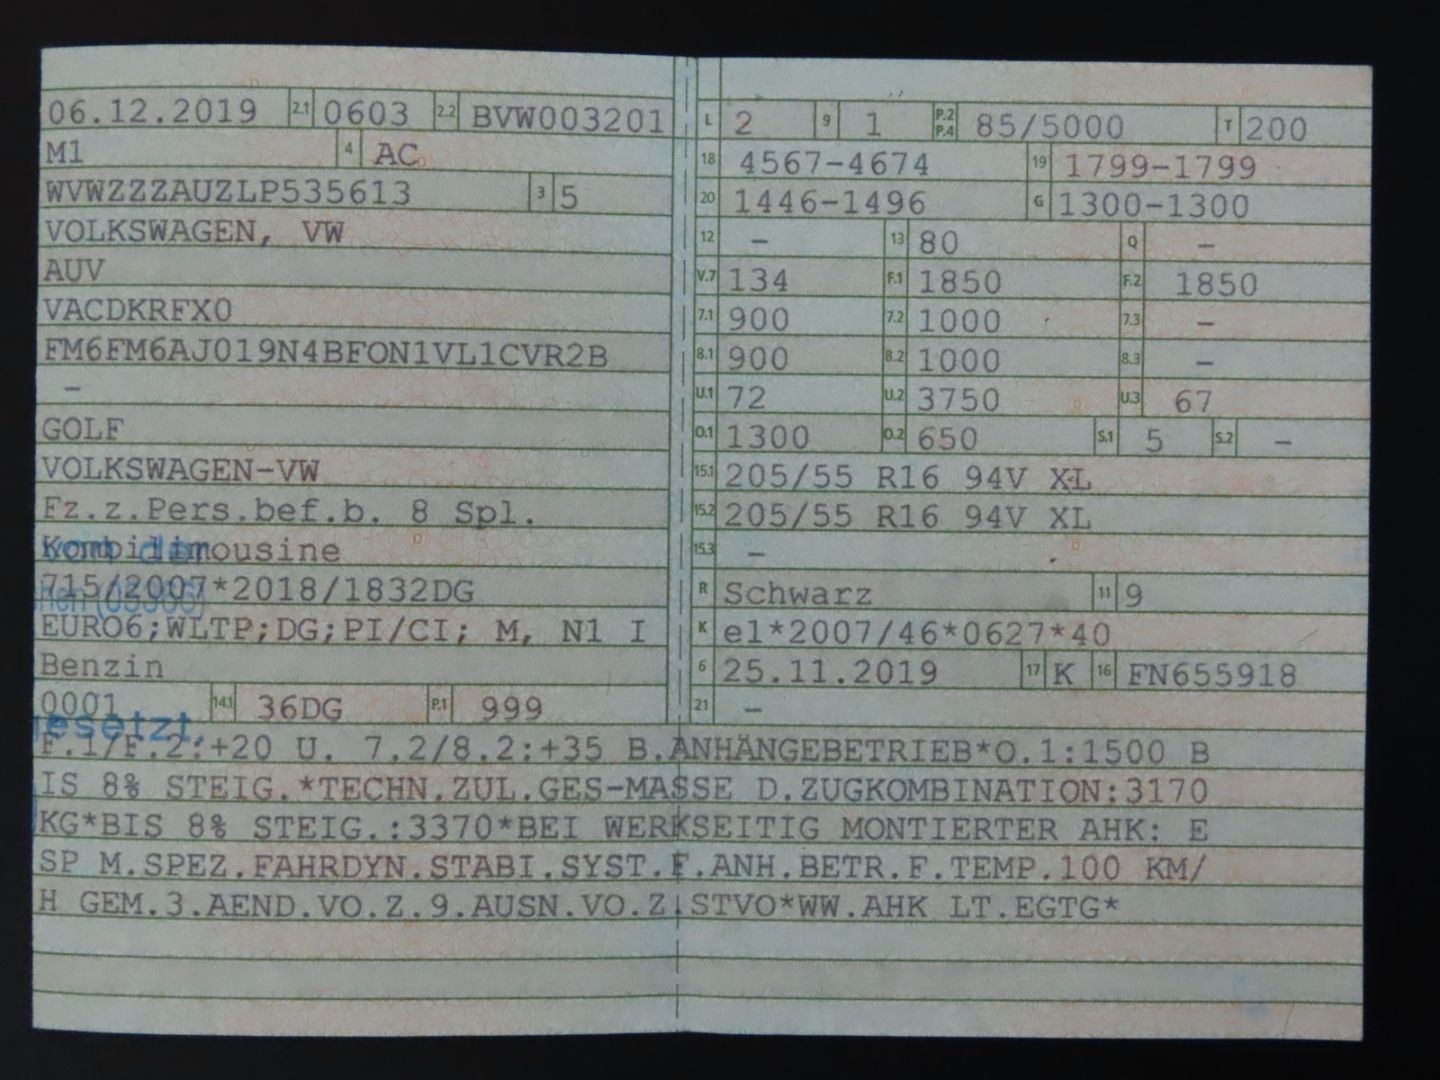 06.12.2019 2.1 0603 2.2 BVW003201 L 2 9 1 P.2 P.4 85/5000 T 200
M1 4 AC 18 4567-4674 19 1799-1799
WVWZZZAUZLP535613 3 5 20 1446-1496 G 1300-1300
VOLKSWAGEN, VW 12 – 13 80 Q –
AUV V.7 134 F.1 1850 F.2 1850
VACDKRFX0 7.1 900 7.2 1000 7.3 –
FM6FM6AJ019N4BFON1VL1CVR2B 8.1 900 8.2 1000 8.3 –
– U.1 72 U.2 3750 U.3 67
GOLF O.1 1300 O.2 650 S.1 5 S.2 –
VOLKSWAGEN-VW 15.1 205/55 R16 94V XL
Fz.z.Pers.bef.b. 8 Spl. 15.2 205/55 R16 94V XL
Kombilimousine 15.3 –
715/2007*2018/1832DG R Schwarz 11 9
EURO6;WLTP;DG;PI/CI; M, N1 I K e1*2007/46*0627*40
Benzin 6 25.11.2019 17 K 16 FN655918
0001 14.1 36DG P.1 999 21 –
gesetzt.
F.1/F.2:+20 U. 7.2/8.2:+35 B.ANHÄNGEBETRIEB*O.1:1500 B
IS 8% STEIG.*TECHN.ZUL.GES-MASSE D.ZUGKOMBINATION:3170
KG*BIS 8% STEIG.:3370*BEI WERKSEITIG MONTIERTER AHK: E
SP M.SPEZ.FAHRDYN.STABI.SYST.F.ANH.BETR.F.TEMP.100 KM/
H GEM.3.AEND.VO.Z.9.AUSN.VO.Z.STVO*WW.AHK LT.EGTG*